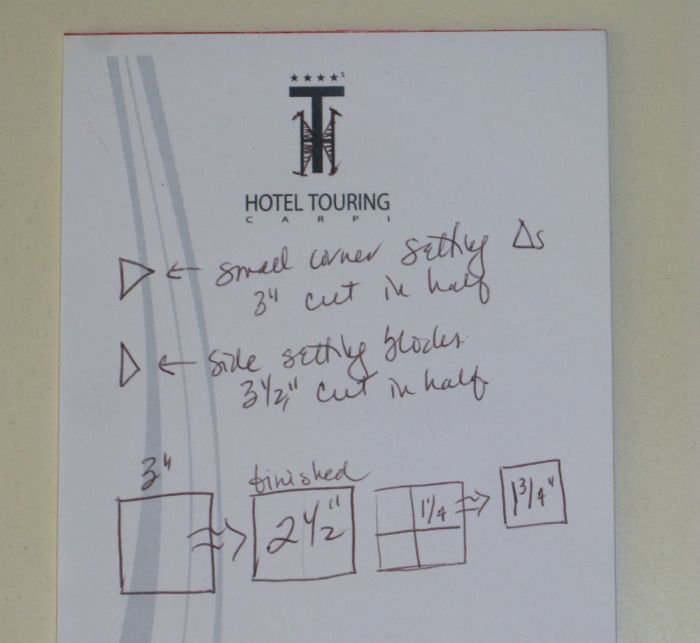 ★★★★S
TH
HOTEL TOURING
CARPI
small corner setting Δs
3" cut in half
side setting blocks
3½" cut in half
3"
finished
2½"
1¼
1¾"